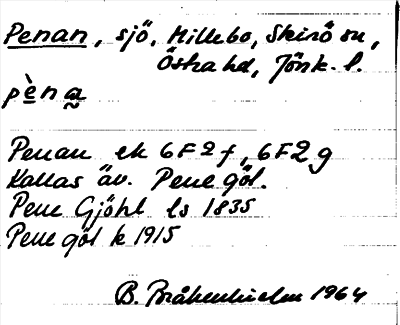 Penan, sjö, Millebo, Skirö sn,
Östra hd, Jönk. l.
pèna̰
Penan ek 6F2f, 6F2g
Kallas äv. Pene göl.
Pene Gjöhl ls 1835
Pene göl k 1915
B. Bråkenhielm 1964